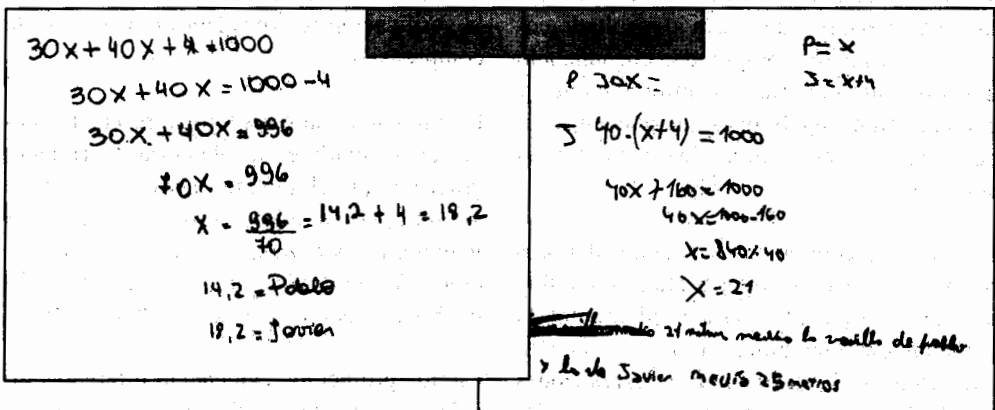 30x + 40x + 4 = 1000
30x + 40x = 1000 - 4
30x + 40x = 996
70x = 996
x = 996/70 = 14,2 + 4 = 18,2
14,2 = Pablo
18,2 = Javier
P = x
J = x+4
P 30x =
J 40·(x+4) = 1000
40x + 160 = 1000
40x = 1000-160
x = 840/40
x = 21
21 metros medía la varilla de pablo
y la de Javier medía 25 metros